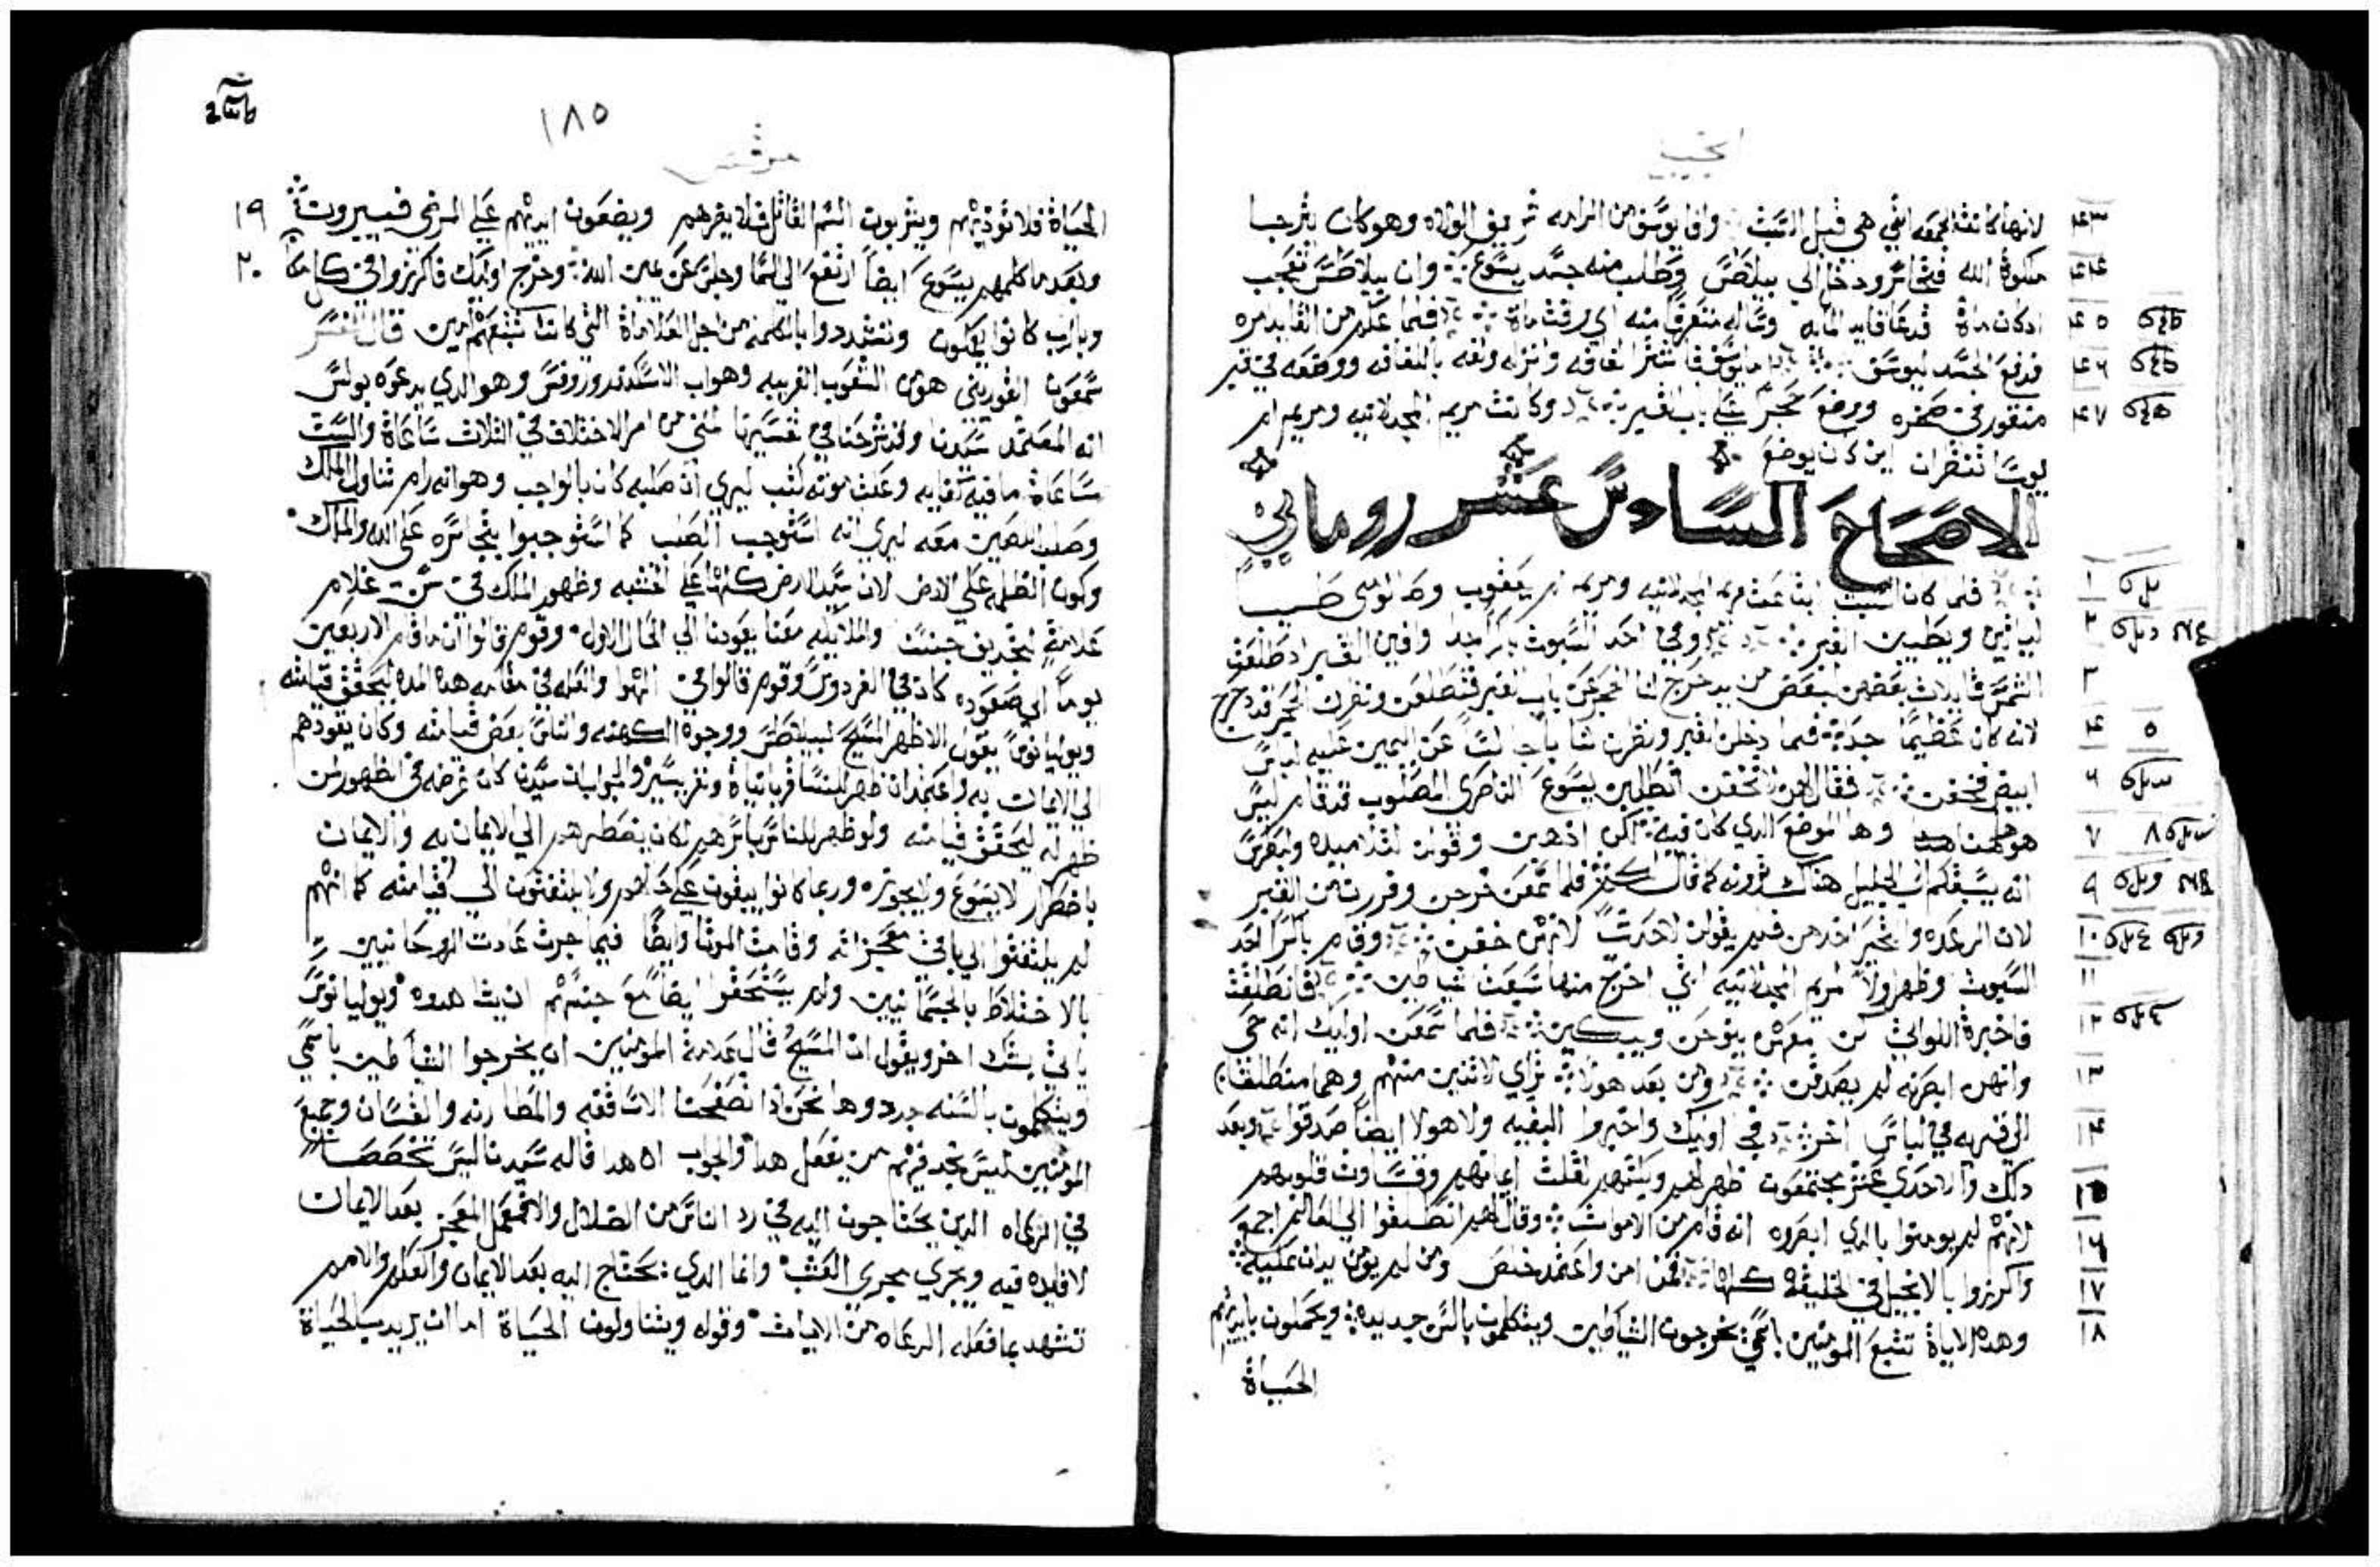 انجيل
لانها كانت الجمعه التي هي قبل السبت وافا يوسف من الرامه شريف الولاه وهو كان يترجا
ملكوة الله فتجاسر ودخل الي بيلاطس وطلب منه جسد يسوع وان بيلاطس تعجب
اد كان ماة فدعا قايد المايه وساله متعرفا منه اي وقت ماة فلما علم من القايد مره
فدفع الجسد ليوسف يوسف فاشترا لفافه وانزله ولفه باللفافه ووضعه في قبر
منقور في صخره ووضع حجر علي باب القبر وكانت مريم المجدلانيه ومريم ام
يوسا تنظران اين كان يوضع
الاصحاح السادس عشر روماني
فلما كان السبت ابتاعت مريم المجدلانيه ومريم ام يعقوب وصالومي طيب
لياتين ويطيبن القبر وفي احد السبوت باكرا جدا وافين القبر اد طلعت
الشمس قايلات بعضهن لبعض من يدحرج لنا الحجر عن باب القبر فتطلعن ونظرن الحجر قد دحرج
لانه كان عظيما جدا فلما دخلن القبر ونظرن شابا جالسا عن اليمين عليه لباس
ابيض فخفن فقال لهن لا تخفن اتطلبن يسوع الناصري المصلوب قد قام ليس
هو ههنا وها الموضع الدي كان فيه لكن ادهبن وقولن لتلاميده ولبطرس
انه يسبقكم الي الجليل هناك ترونه كما قال لكم فلما سمعن خرجن وفررن من القبر
لان الرعده والتحير اخدهن فلم يقولن لاحد شيا لانهن خفن وقام باكرا احد
السبوت وظهر اولا لمريم المجدلانيه التي اخرج منها سبعت شياطين فانطلقت
فاخبرة اللواتي كن معهن ينوحن ويبكين فلما سمعن اوليك انه حي
وانهن ابصرنه لم يصدقن ومن بعد هولا تراي لاتنين منهم وهما منطلقان
الي قريه في لباس اخر اوليك واخبروا البقيه ولا هولا ايضا صدقوا وبعد
دلك والاحدي عشر مجتمعون ظهر لهم وبكتهم لقلت ايمانهم وقساوت قلوبهم
لانهم لم يومنوا بالدي ابصروه انه قام من الاموات وقال لهم انطلقوا الي العالم اجمع
واكرزوا بالانجيل في الخليقة كلها فمن امن واعتمد خلص ومن لم يومن يدان
وهده الاياة تتبع المومنين باسمي يخرجون الشياطين ويتكلمون بالسن جديده ويحملون بايديهم
الحياة
٤٣
٤٤
٤٥
٤٦
٤٧
١
٢
٣
٤
٥
٦
٧
٨
٩
١٠
١١
١٢
١٣
١٤
١٥
١٦
١٧
١٨
١٨٥
مرقس
الحياة فلا توديهم ويشربون السم القاتل فلا يضرهم ويضعون ايديهم علي المرضي فيبرون ١٩
وبعد ما كلمهم يسوع ايضا ارتفع الي السما وجلس عن يمين الله وخرج اوليك فاكرزوا في كل مكان ٢٠
وبالرب كانوا يعملون وتشددوا بالكلمه من اجل العلاماة التي كانت تتبعهم امين قال المفسر
سمعون القوريني هو من الشعوب الغريبه وهو اب الاسكندر وروفس وهو الدي يدعوه بولس
انه المعتمد سيدنا وقد شرحنا في تفسير متي من امر الاختلاف في التلات ساعاة والست
ساعاة ما فيه كفايه وعلت موته كتب ليري ان صلبه كان بالواجب وهو انه رام تناول الملك
وصلب اللصين معه ليري انه استوجب الصلب كما استوجبوا بتجاسره علي الله والملك
وكون الظلمه علي الارض لان سيد الارض كلها علي الخشبه وظهور الملك في سن غلام
علامة لتجديف جنسنا والملايكه معنا بعودنا الي الحال الاول وقوم قالوا ان مقام الاربعين
يوما الي صعوده كان في الفردوس وقوم قالوا في الهوا والعله في مقامه هده المده ليحقق قيامته
ويوليانوس يقول الا ظهر المسيح لبيلاطس ووجوة الكهنه والناس بعض قيامته وكان يقودهم
الي الايمان به والجواب ان سيدنا كان غرضه في الظهور لمن
ظهر له ليحقق قيامته ولو ظهر للناس باسرهم لكان يضطرهم الي الايمان به والايمان
باضطرار لا يسوغ ولا يجوزه وربما كانوا يبقون علي حالهم ولا يلتفتون الي قيامته كما انهم
لم يلتفتوا الي باقي معجزاته واقامت الموتا وايضا فيما جرت عادت الروحانيين
بالاختلاط بالجسمانيين ولم يستحقوا ايضا مع خبثهم ان يشاهدوه ويوليانوس
ياتي بشك اخر ويقول ان المسيح قال علامة المومنين ان يخرجوا الشياطين باسمي
ويتكلمون بالسنه جدد وها نحن ادا تصفحنا الاساقفه والمطارنه والقسان وجميع
المومنين ليس نجد فيهم من يفعل هدا والجواب ان هدا قاله سيدنا ليس تخصصا
في الرعاه الدين يحتاجون اليه في رد الناس من الضلال والا فعمل المعجز بعد الايمان
لا فايده فيه ويجري مجري العبث وانما الدي يحتاج اليه بعد الايمان والعلم والامر
تشهد بما فعله الرعاه من الايات وقوله ويتناولون الحياة اما ان يريد بالحياة